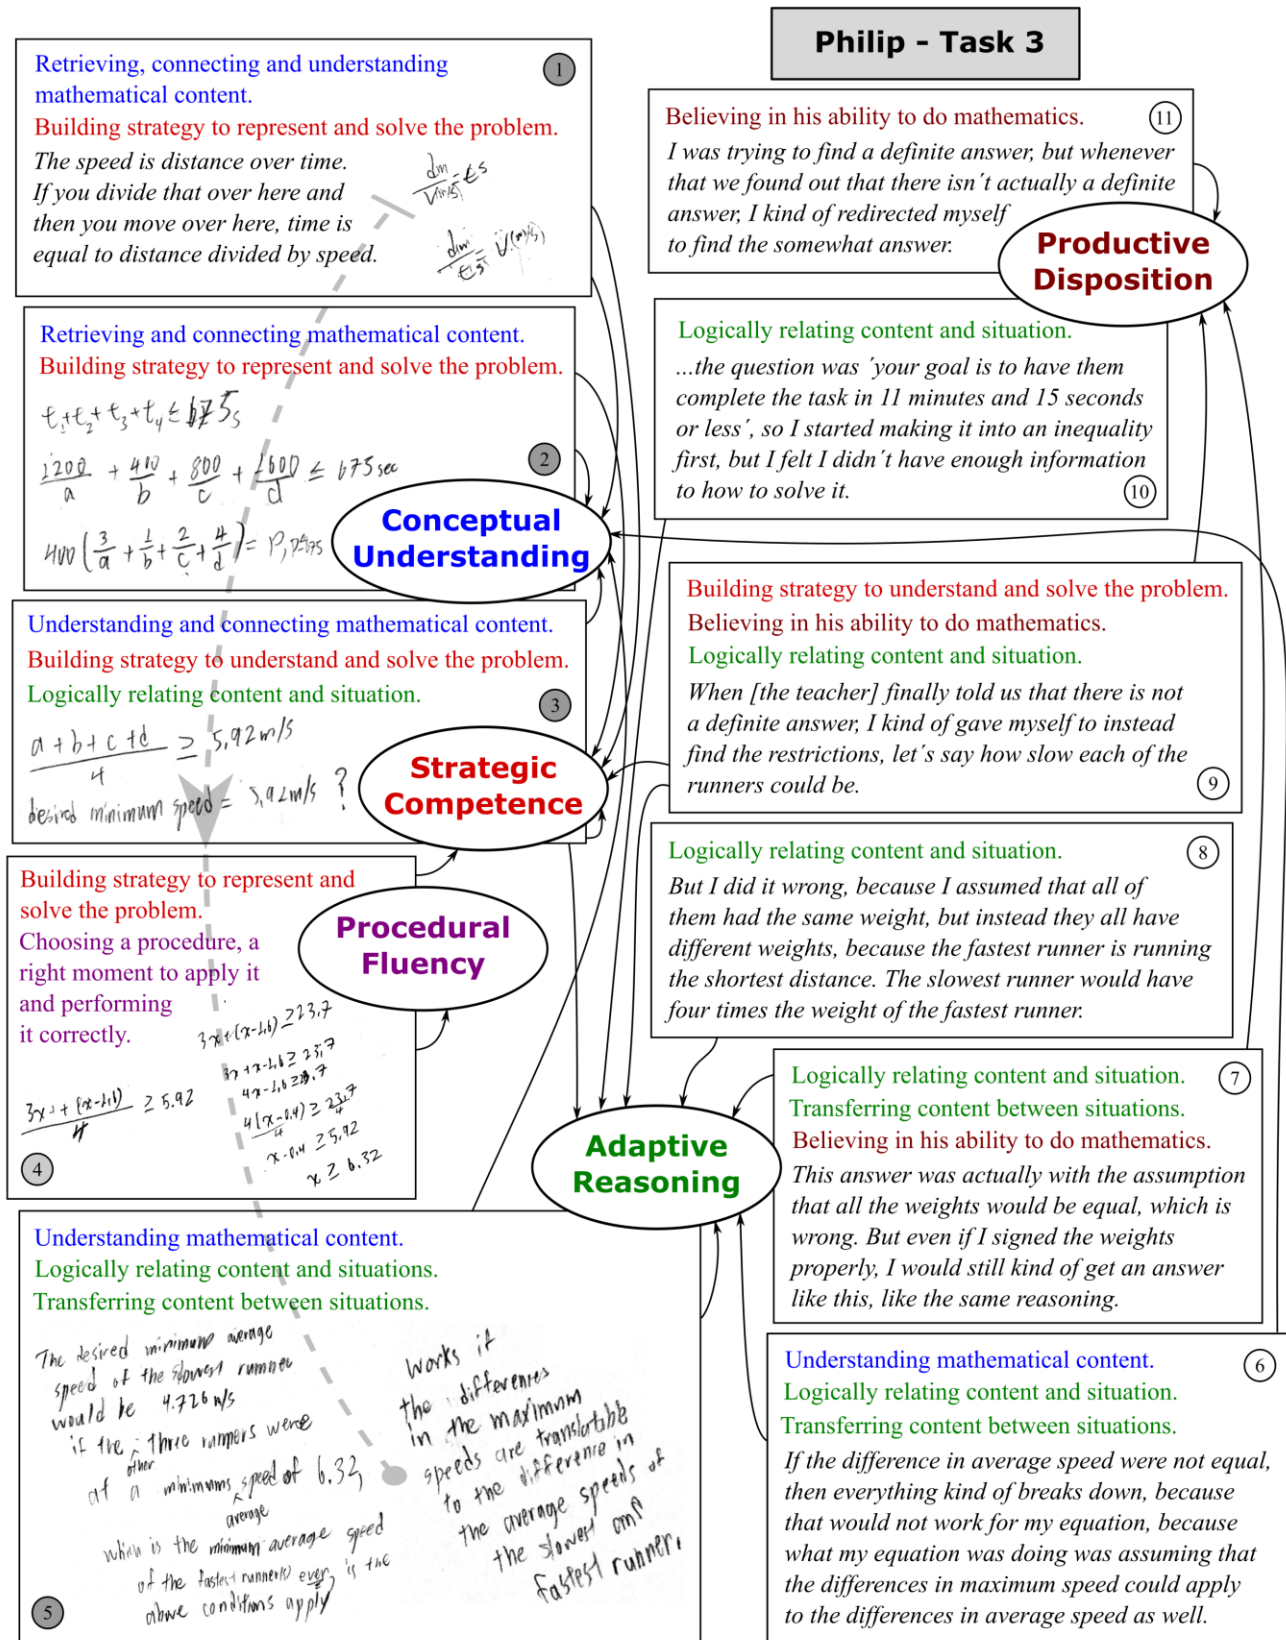 Philip - Task 3
1
Retrieving, connecting and understanding
mathematical content.
Building strategy to represent and solve the problem.
The speed is distance over time.
If you divide that over here and
then you move over here, time is
equal to distance divided by speed.
2
Retrieving and connecting mathematical content.
Building strategy to represent and solve the problem.
t₁+t₂+t₃+t₄ ≤ 675s
1200/a + 400/b + 800/c + 1600/d ≤ 675 sec
400(3/a + 1/b + 2/c + 4/d) = P, P≤675
Conceptual
Understanding
3
Understanding and connecting mathematical content.
Building strategy to understand and solve the problem.
Logically relating content and situation.
(a+b+c+d)/4 ≥ 5,92 m/s
desired minimum speed = 5,92m/s ?
Strategic
Competence
Building strategy to represent and
solve the problem.
Choosing a procedure, a
right moment to apply it
and performing
it correctly.
3x+(x-1,6) ≥ 23,7
3x+x-1,6 ≥ 23,7
4x-1,6 ≥ 23,7
4(x-0,4)/4 ≥ 23,7/4
x-0,4 ≥ 5,92
x ≥ 6.32
(3x+(x-1,6))/4 ≥ 5.92
4
Procedural
Fluency
Understanding mathematical content.
Logically relating content and situations.
Transferring content between situations.
The desired minimum average
speed of the slowest runner
would be 4.726 m/s
if the other three runners were
at a minimums average speed of 6.32,
which is the minimum average speed
of the fastest runner(s) ever, is the
above conditions apply
works if
the differences
in the maximum
speeds are translatable
to the difference in
the average speeds of
the slowest and
fastest runner.
5
Adaptive
Reasoning
11
Believing in his ability to do mathematics.
I was trying to find a definite answer, but whenever
that we found out that there isn´t actually a definite
answer, I kind of redirected myself
to find the somewhat answer.
Productive
Disposition
Logically relating content and situation.
...the question was ´your goal is to have them
complete the task in 11 minutes and 15 seconds
or less´, so I started making it into an inequality
first, but I felt I didn´t have enough information
to how to solve it.
10
Building strategy to understand and solve the problem.
Believing in his ability to do mathematics.
Logically relating content and situation.
When [the teacher] finally told us that there is not
a definite answer, I kind of gave myself to instead
find the restrictions, let´s say how slow each of the
runners could be.
9
Logically relating content and situation.
8
But I did it wrong, because I assumed that all of
them had the same weight, but instead they all have
different weights, because the fastest runner is running
the shortest distance. The slowest runner would have
four times the weight of the fastest runner.
Logically relating content and situation.
7
Transferring content between situations.
Believing in his ability to do mathematics.
This answer was actually with the assumption
that all the weights would be equal, which is
wrong. But even if I signed the weights
properly, I would still kind of get an answer
like this, like the same reasoning.
Understanding mathematical content.
6
Logically relating content and situation.
Transferring content between situations.
If the difference in average speed were not equal,
then everything kind of breaks down, because
that would not work for my equation, because
what my equation was doing was assuming that
the differences in maximum speed could apply
to the differences in average speed as well.